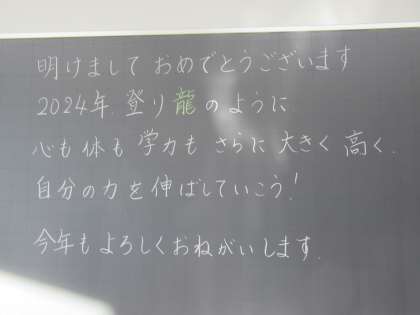 明けまして おめでとうございます
2024年 登り龍のように
心も 体も 学力も さらに 大きく 高く.
自分の力を伸ばしていこう!
今年もよろしくおねがいします.